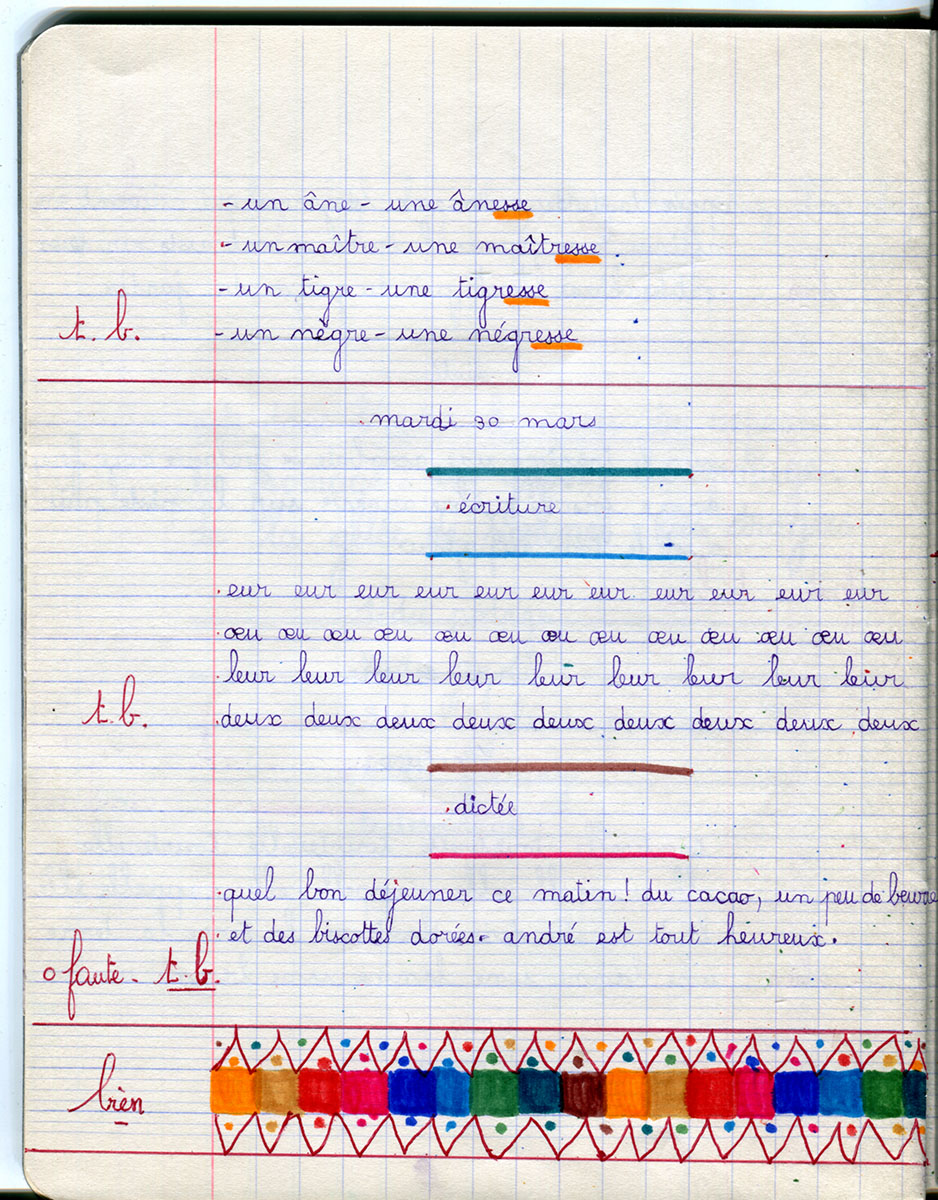 - un âne - une ânesse
- un maître - une maîtresse
- un tigre - une tigresse
t. b. - un nègre - une négresse
mardi 30 mars
écriture
eur eur eur eur eur eur eur eur eur eur eur
œu œu œu œu œu œu œu œu œu œu œu œu œu
leur leur leur leur leur leur leur leur leur
t. b. deux deux deux deux deux deux deux deux deux
dictée
quel bon déjeuner ce matin! du cacao, un peu de beurre
et des biscottes dorées. andré est tout heureux.
0 faute - t. b.
bien